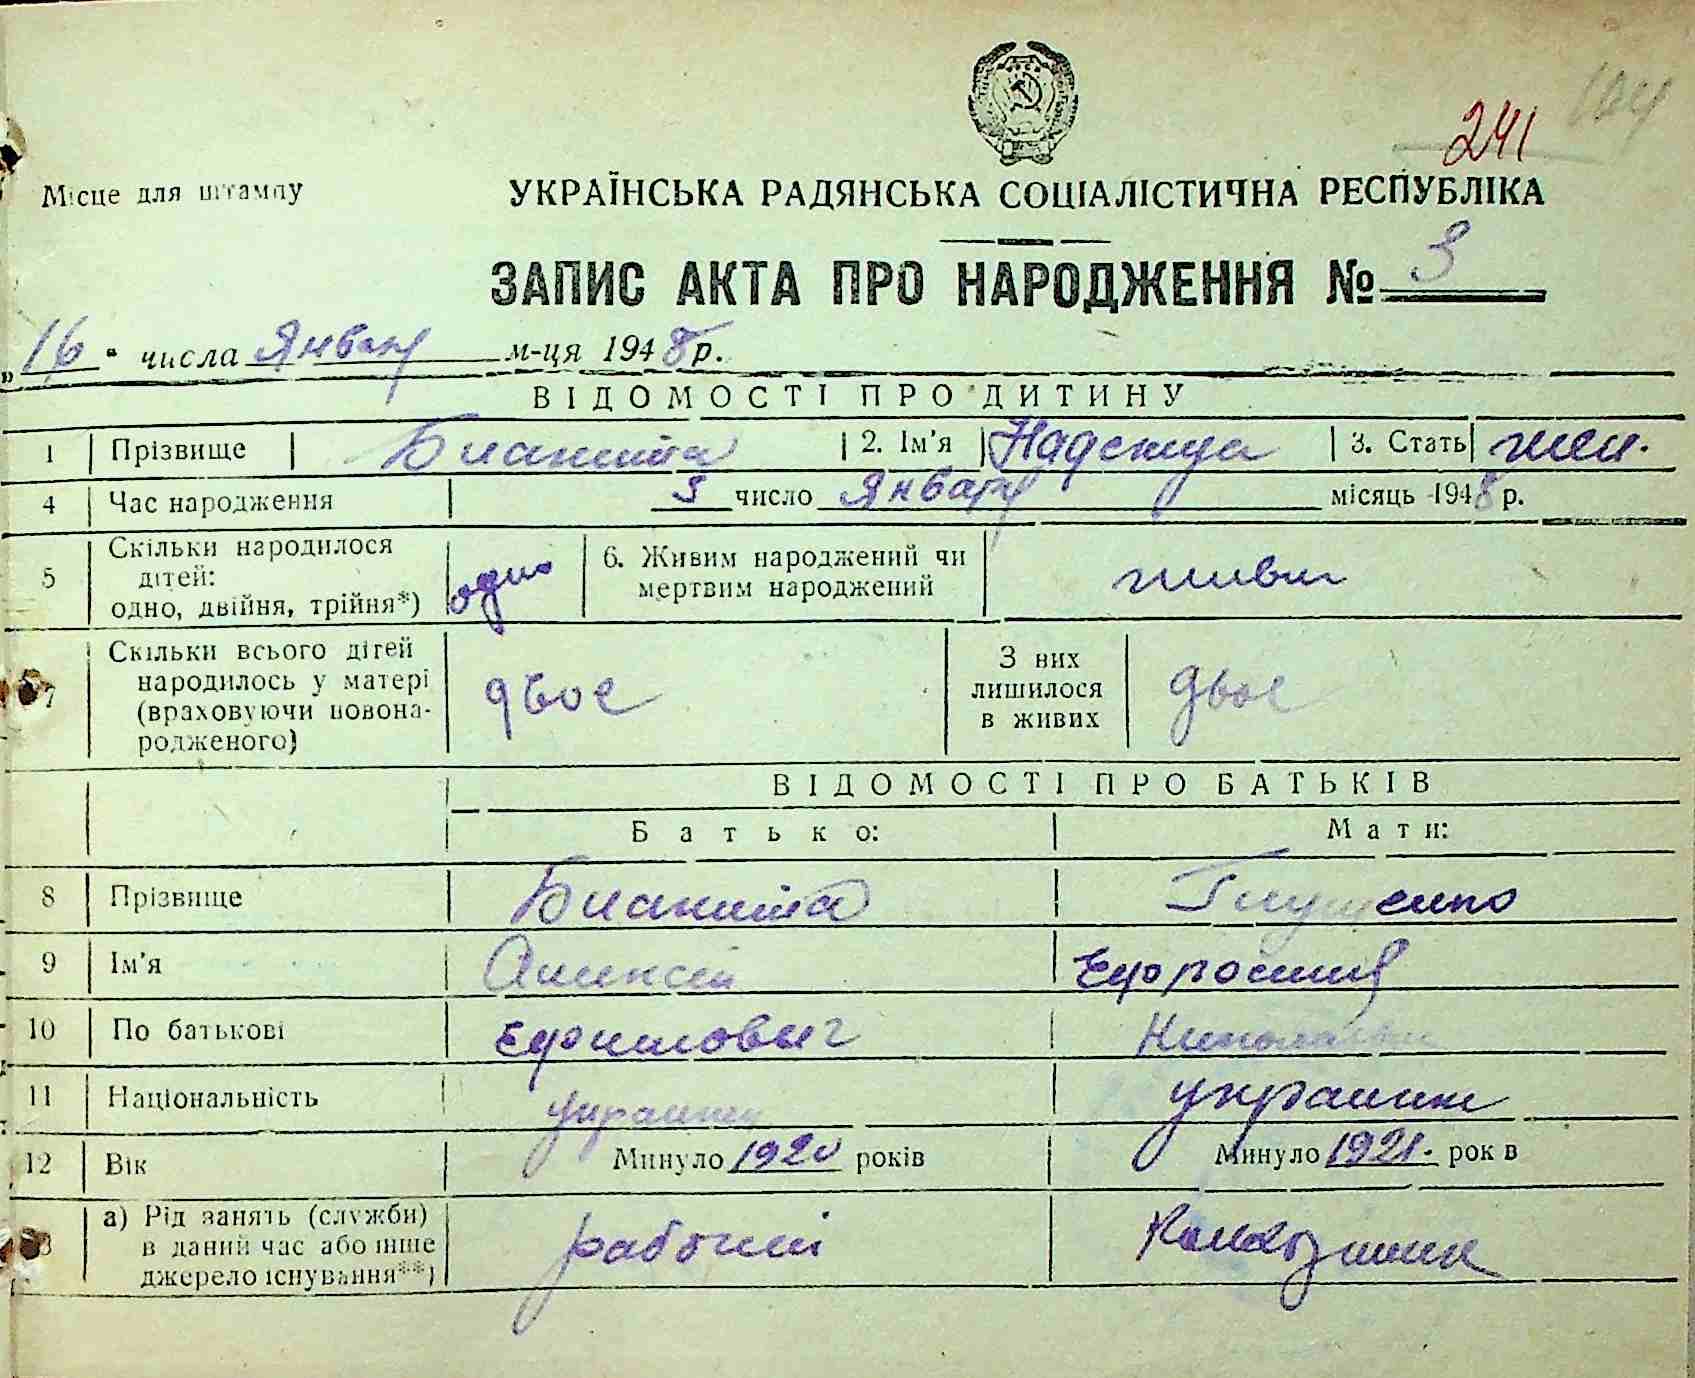 241
Місце для штампу
УКРАЇНСЬКА РАДЯНСЬКА СОЦІАЛІСТИЧНА РЕСПУБЛІКА
ЗАПИС АКТА ПРО НАРОДЖЕННЯ № 3
„16" числа Января м-ця 1948 р.
ВІДОМОСТІ ПРО ДИТИНУ
1 Прізвище 2. Ім'я Надежда 3. Стать жен.
4 Час народження число Января місяць 1948 р.
5 Скільки народилося
дітей:
одно, двійня, трійня*) одно
6. Живим народжений чи
мертвим народжений живым
7 Скільки всього дітей
народилось у матері
(враховуючи новона-
родженого) двое
З них
лишилося
в живих двое
ВІДОМОСТІ ПРО БАТЬКІВ
Батько: Мати:
8 Прізвище Глущенко
9 Ім'я Алексей Ефросиния
10 По батькові Николаевн
11 Національність украинец украинк
12 Вік Минуло 1920 років Минуло 1921. років
13 а) Рід занять (служби)
в даний час або інше
джерело існування**) рабочий